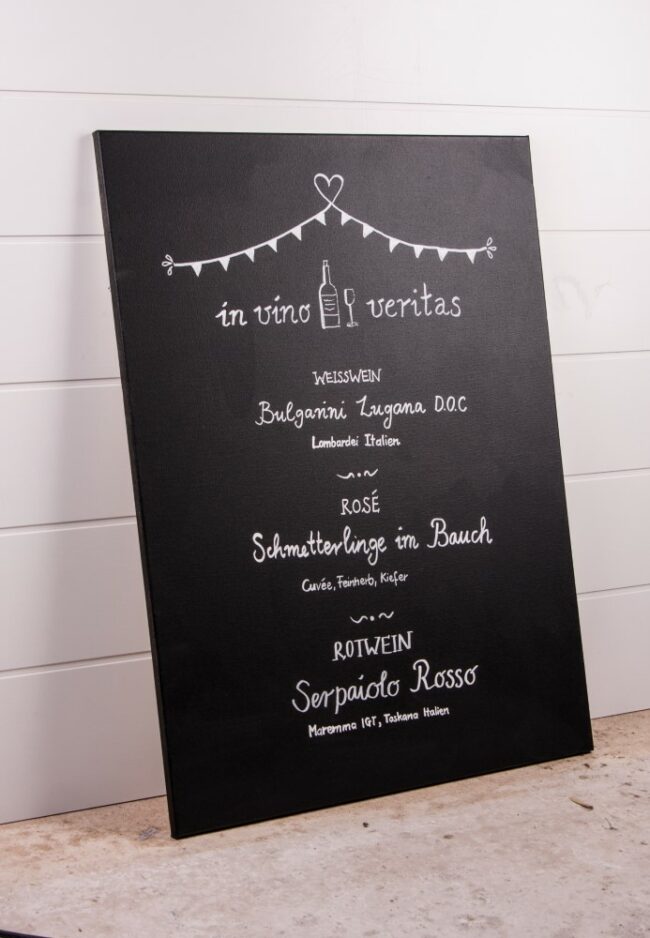 in vino veritas
WEISSWEIN
Bulgarini Lugana D.O.C
Lombardei Italien
ROSÉ
Schmetterlinge im Bauch
Cuvée, Feinherb, Kiefer
ROTWEIN
Serpaiolo Rosso
Maremma IGT, Toskana Italien